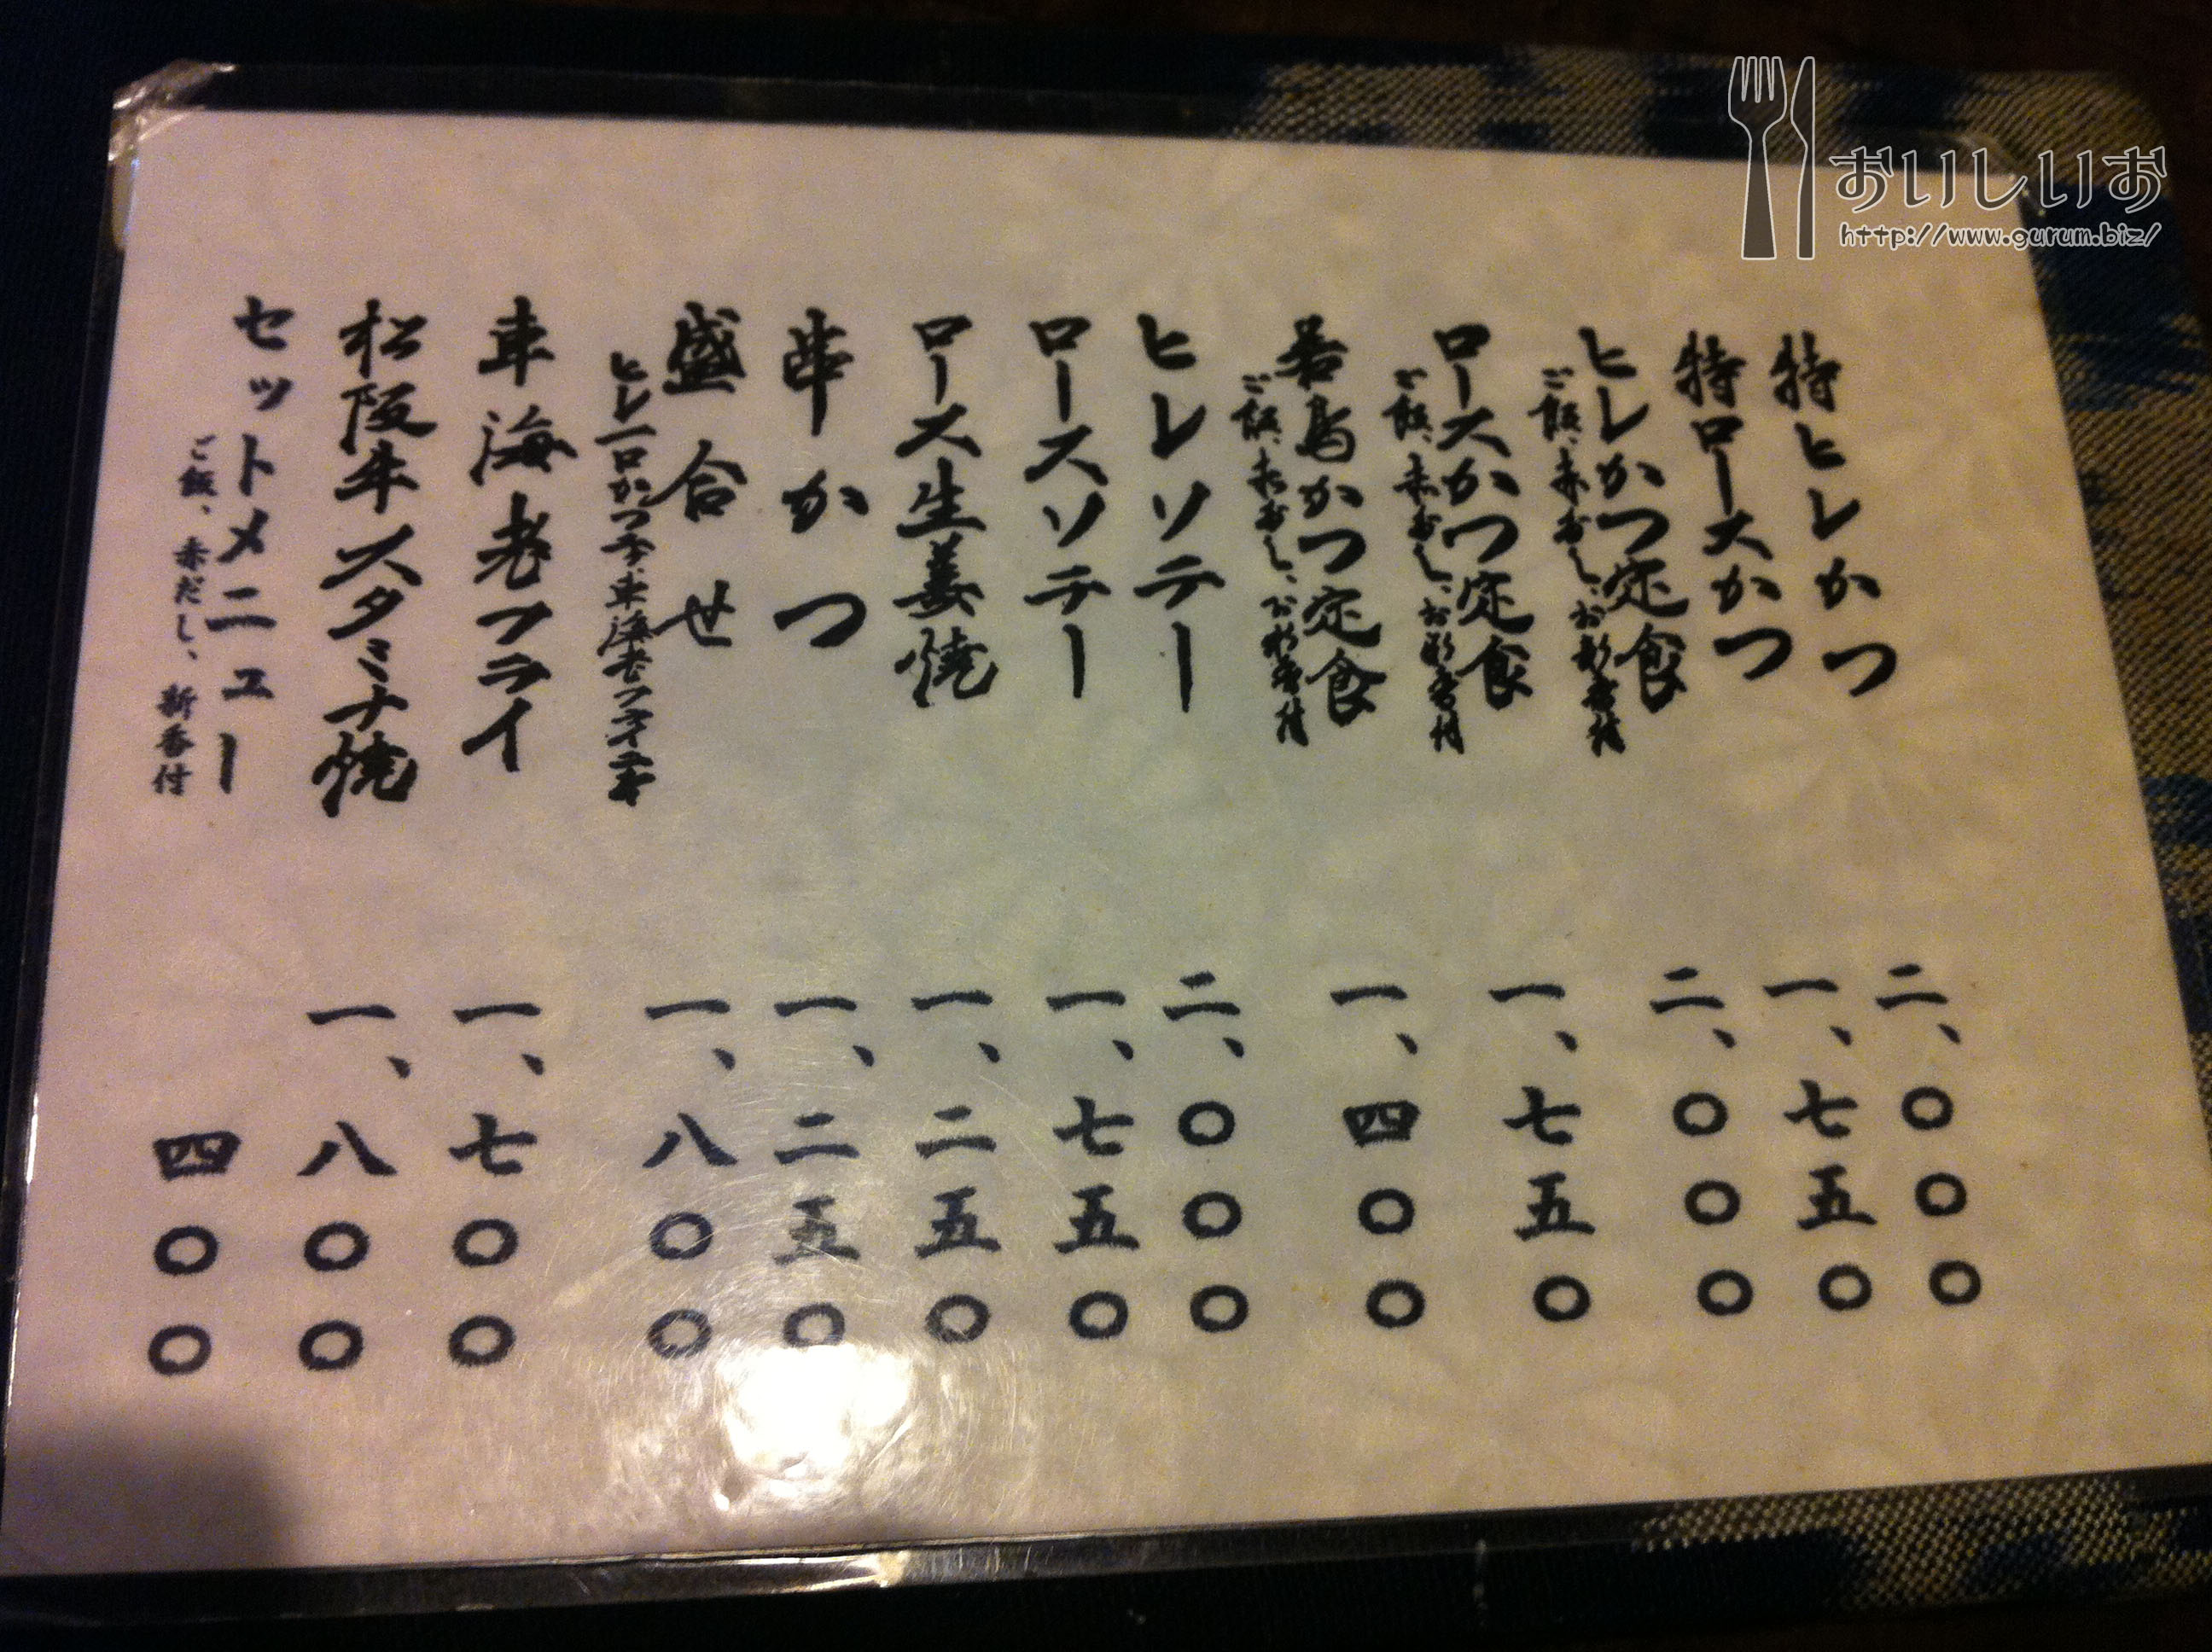 特ヒレかつ 二、〇〇〇
特ロースかつ 一、七五〇
ヒレかつ定食 二、〇〇〇
ご飯、赤だし、お新香付
ロースかつ定食 一、七五〇
ご飯、赤だし、お新香付
若鳥かつ定食 一、四〇〇
ご飯、赤だし、お新香付
ヒレソテー 二、〇〇〇
ロースソテー 一、七五〇
ロース生姜焼 一、二五〇
串かつ 一、二五〇
盛合せ 一、八〇〇
ヒレ一口かつ二ヶ、車海老フライ二本
車海老フライ 一、七〇〇
松阪牛スタミナ焼 一、八〇〇
セットメニュー 四〇〇
ご飯、赤だし、新香付
おいしいお
http://www.gurum.biz/